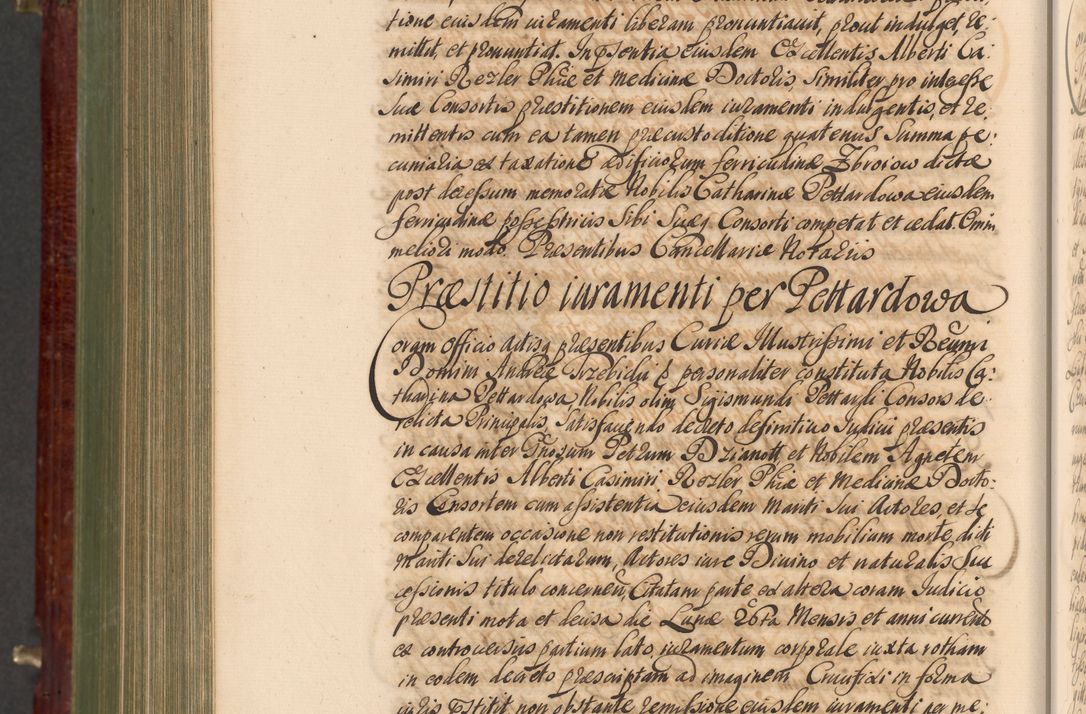 tione eiusdem iuramenti liberam pronuntiauit, prout indulget, re-
mittit, et pronuntiat. In pñtia eiusdem Excellentis Alberti Ca-
simiri Rezler Phiæ et Medicinæ Doctoris, similiter pro interesse
Suæ Consortis præstitionem eiusdem iuramenti indulgentis, et re-
mittentis cum ea tamen præcustoditione quatenus Summa pe-
cuniaria ex taxatione ædificiorum ferricudinæ Zbroiow dictæ
post decessum memoratæ Nobilis Catharinæ Pettardowa eiusdem
ferricudinæ possestricis Sibi Suæq Consorti competat et cedat. Omni
meliori modo. Præsentibus Cancellariæ Notariis
Præstitio iuramenti per Pettardowa
Coram Officio Actisq præsentibus Curiæ Illustrissimi et Reũmi
Domini Andreæ Trzebicki & personaliter constituta Nobilis Ca-
tharina Pettardowa Nobilis olim Sigismundi Pettardi Consors de-
relicta Principalis, Satisfaciendo decreto definitiuo Iudicii præsentis
in causa inter Gñosum Petrum Dzianott et Nobilem Agnetem
Excellentis Alberti Casimiri Rezler Phiæ et Medicinæ Docto-
ris Consortem cum assistentia eiusdem Mariti Sui Actores, et Se
comparentem occasione non restitutionis rerum mobilium morte dicti
Mariti Sui derelictarum, Actores iure Diuino et naturalis Suc
cessionis titulo concerneñ, Citatam parte ex altera coram Iudicio
præsenti mota et decisa die Lunæ 26ta Mensis et anni currentis
ex controuersiis partium lato, iuramentum corporale iuxta rotham
in eodem decreto præscriptam ad imaginem Crucifixi in forma
iuris præstitit non obstante remissione eiusdem iuramenti per me-